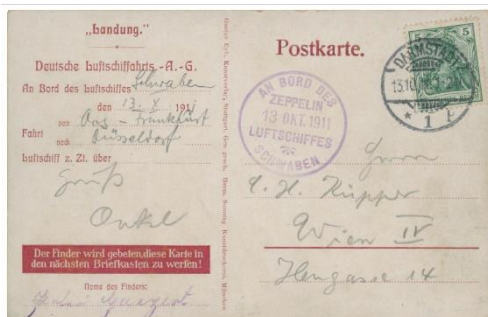 „Landung.“
Deutsche Luftschiffahrts.-A.-G.
An Bord des Luftschiffes Schwaben
den 13. X 1911
von Oos - Frankfurt
Fahrt
nach Düsseldorf
Luftschiff z. Zt. über
Gruß
Onkel
Der Finder wird gebeten, diese Karte in
den nächsten Briefkasten zu werfen!
Name des Finders:
Postkarte.
AN BORD DES
ZEPPELIN
13 OKT. 1911
LUFTSCHIFFES
SCHWABEN
5 5
DARMSTADT
13.10
* 1
Herrn
C. H. Küpper
Wien IV
Heugasse 14